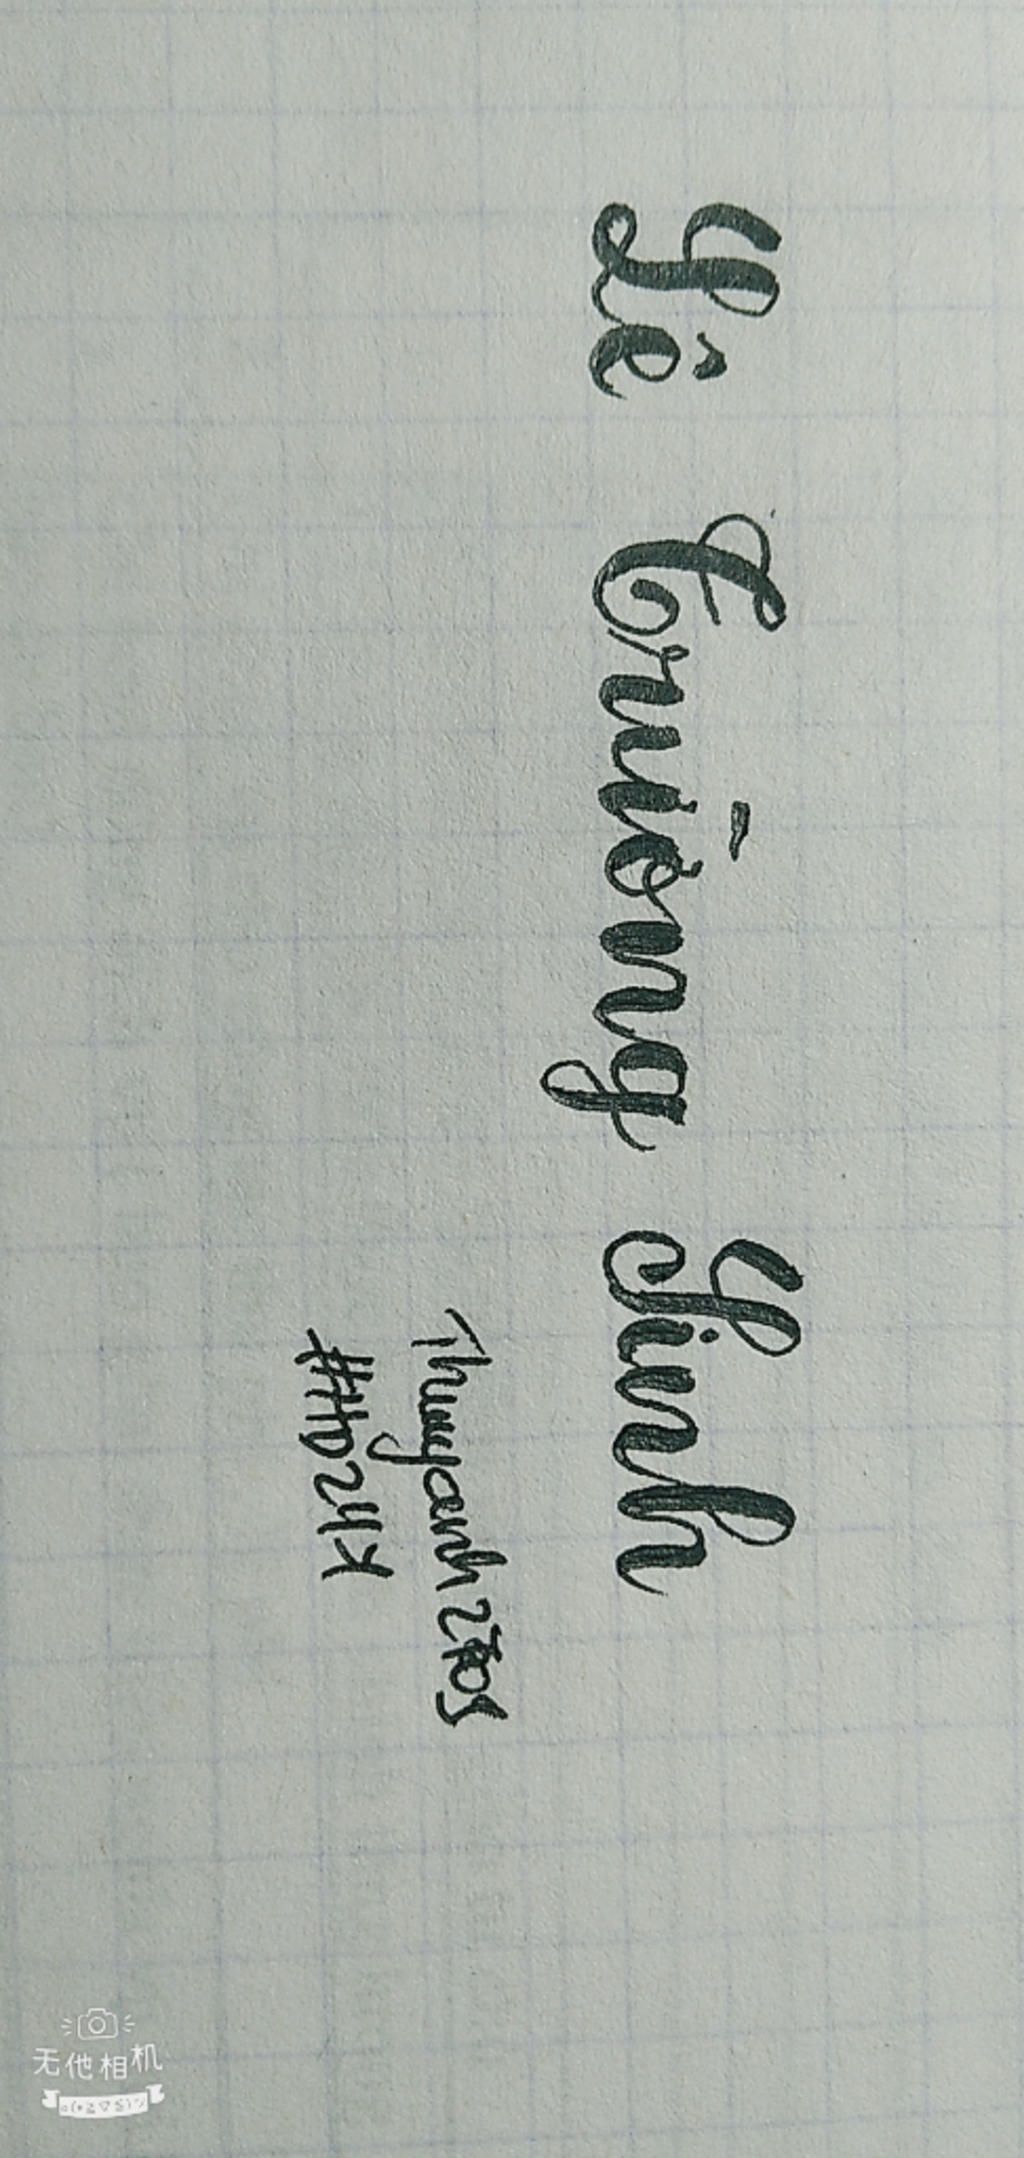 Lê Trường Sinh
Thuuyanh2k05
#HD24Y
无他相机